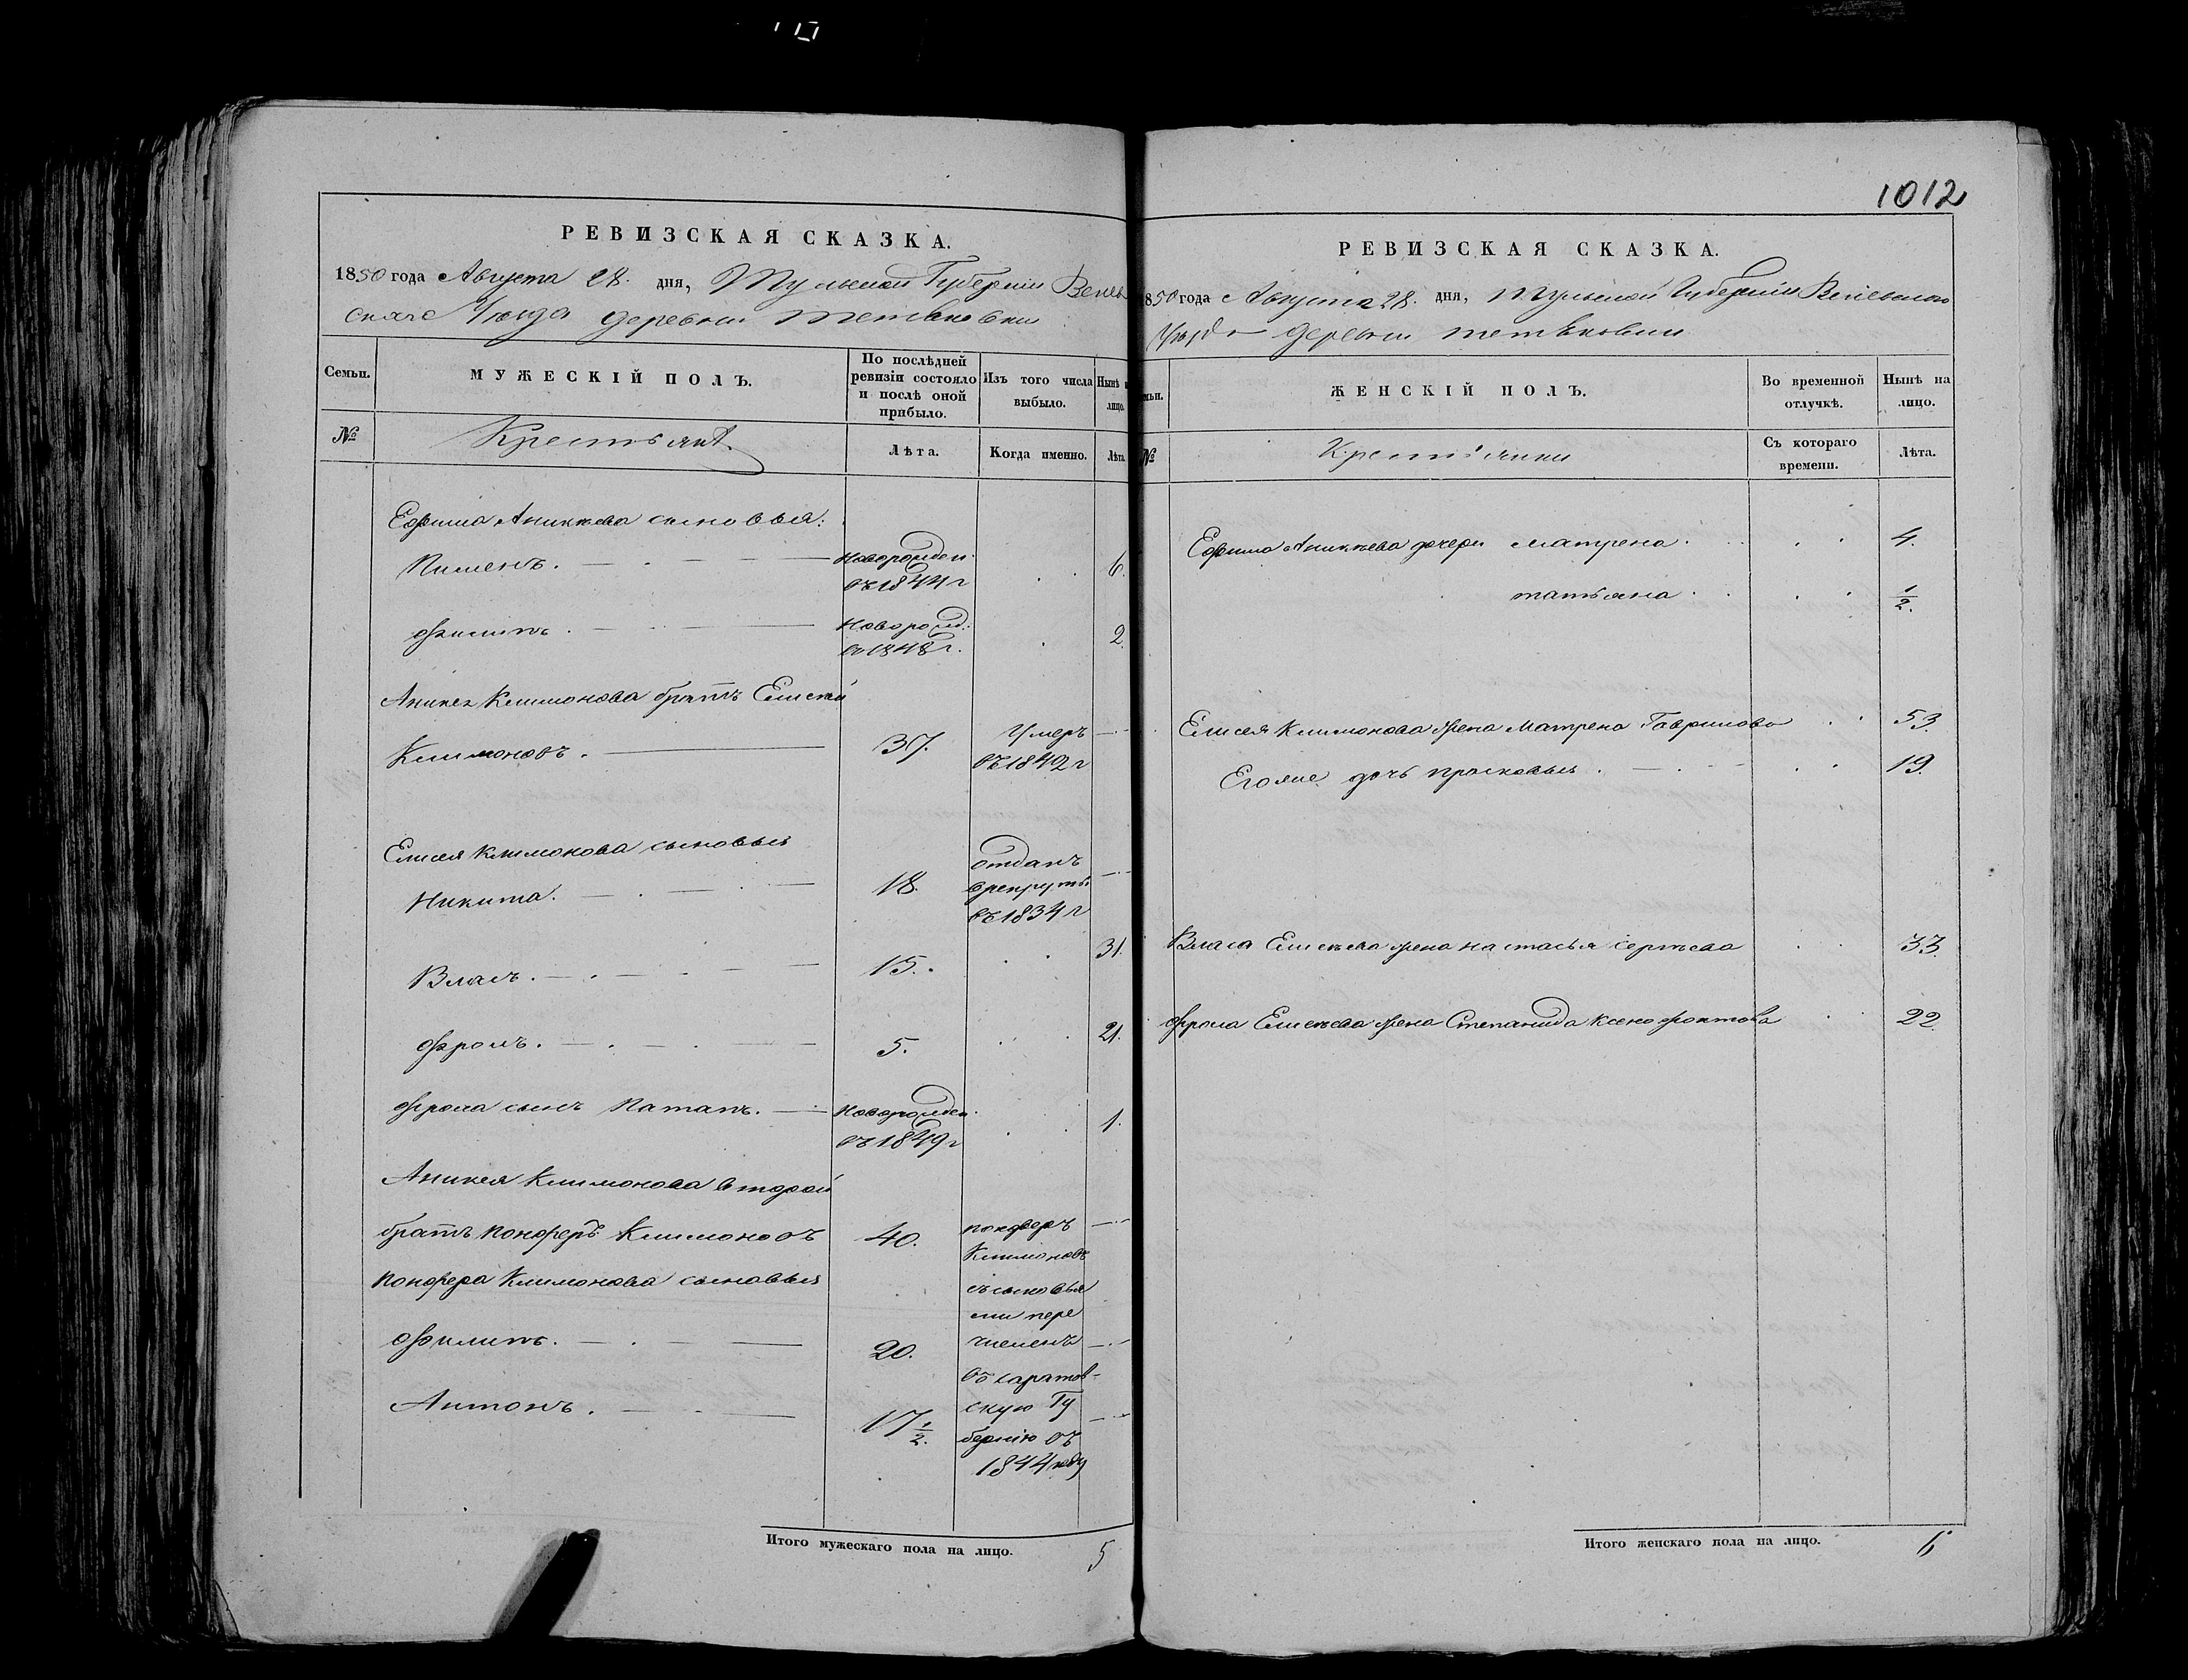 1012
РЕВИЗСКАЯ СКАЗКА.
1850 года Августа 28. дня, Тульской Губернiи Венев
скаго Уѣзда деревни Тетяковки
Семьи.
МУЖЕСКIЙ ПОЛЪ.
По послѣдней ревизiи состояло и послѣ оной прибыло.
Изъ того числа выбыло.
Нынѣ на лицо.
№
Крестьянѣ
Лѣта.
Когда именно.
Лѣта.
Ефима Аникѣева сыновья:
Пименъ. новорожден. въ 1844 г 6.
Филипъ. новорожд. въ 1848 г. 2.
Аникея Климонова братъ Елисѣй
Климоновъ. 37. Умеръ въ 1842 г
Елисея Климонова сыновья
Никита. 18. отданъ в рекруты въ 1834 г
Власъ. 15. 31.
Фролъ. 5. 21.
Фрола сынъ Патапъ. новорожден. въ 1849 г 1.
Аникея Климонова второй
братъ Понферъ Климоновъ 40.
Понфера Климонова сыновья
Филипъ. 20.
Антонъ. 17 1/2.
понферъ
Климоновъ
съ сыновья
ми пере
численъ
въ саратов-
скую Гу
бернiю въ
1844 году
Итого мужескаго пола на лицо. 5
РЕВИЗСКАЯ СКАЗКА.
1850 года Августа 28. дня, Тульской Губернiи Веневского
Уѣзда деревни тетяковки
Семьи.
ЖЕНСКIЙ ПОЛЪ.
Во временной отлучкѣ.
Нынѣ на лицо.
№
Крестьянки
Съ котораго времени.
Лѣта.
Ефима Аникѣева дочери Матрена. 4.
татьяна. 1/2.
Елисея Климонова жена Матрена Гаврилова 53.
Его же дочь прасковья. 19.
Власа Елисѣева жена настасья сергѣева 33.
Фрола Елисѣева жена Степанида ксенофонтова 22.
Итого женскаго пола на лицо. 6